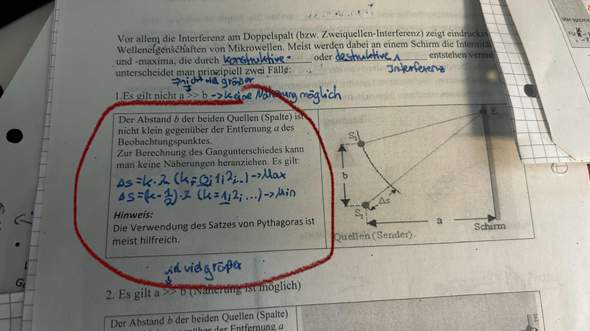 Vor allem die Interferenz am Doppelspalt (bzw. Zweiquellen-Interferenz) zeigt
Welleneigenschaften von Mikrowellen. Meist werden dabei an einem Schirm die
und -maxima, die durch konstruktive- oder destruktive entstehen
Interferenz
unterscheidet man prinzipiell zwei Fälle:
1.Es gilt nicht a >> b -> keine Näherung möglich
Der Abstand b der beiden Quellen (Spalte) ist
nicht klein gegenüber der Entfernung a des
Beobachtungspunktes.
Zur Berechnung des Gangunterschiedes kann
man keine Näherungen heranziehen. Es gilt:
Δs = k·λ (k=0;1;2;..) -> Max
Δs = (k-1/2)·λ (k=1;2;...) -> Min
Hinweis:
Die Verwendung des Satzes von Pythagoras ist
meist hilfreich.
S
b
S
Δs
a
Quellen (Sender)
Schirm
viel größer
2. Es gilt a >> b (Näherung ist möglich)
Der Abstand b der beiden Quellen (Spalte)
der Entfernung a